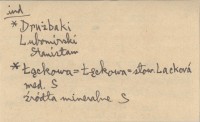 ind
* Drużbaki
Lubomirski
Stanisław
* Łąckowa = Łęckowa = słow. Lacková
med. S
źródła mineralne S